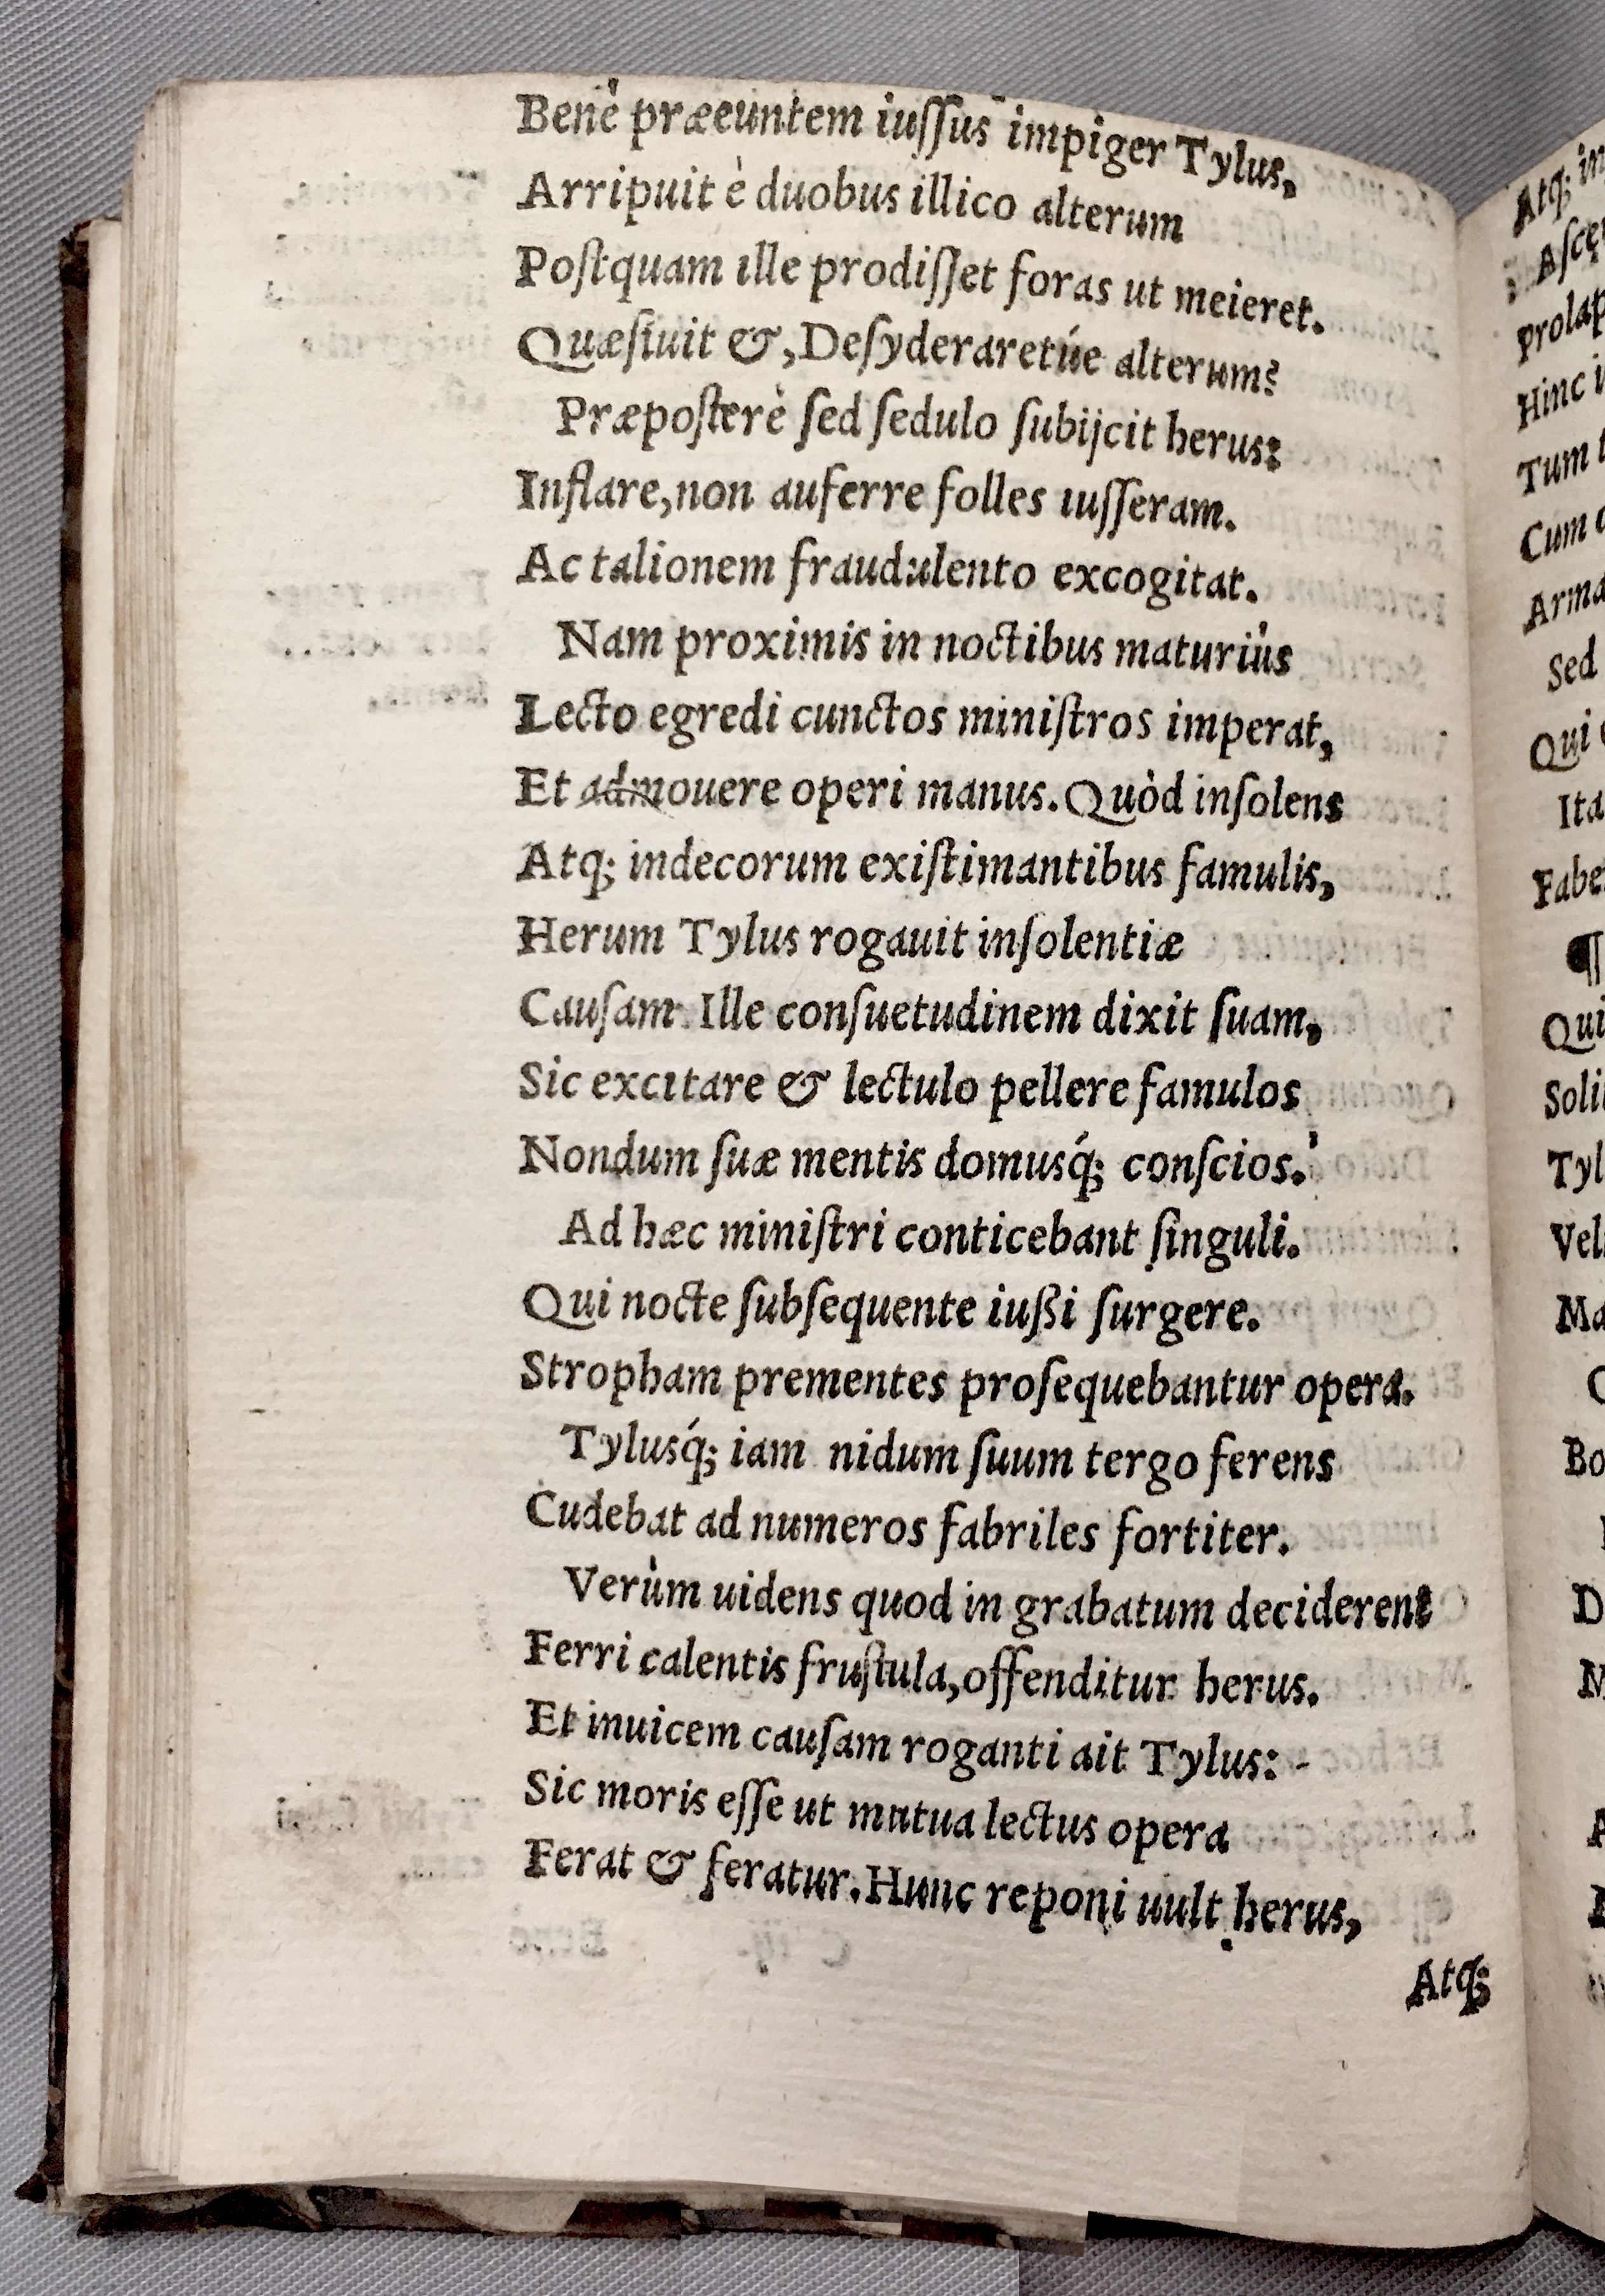 Benè præeuntem iuſſus impiger Tylus,
Arripuit è duobus illico alterum
Poſtquam ille prodiſſet foras ut meieret.
Quæſiuit &, Deſyderaretúe alterum?
Præpoſterè ſed ſedulo ſubijcit herus:
Inflare, non auferre folles iuſſeram.
Ac talionem fraudulento excogitat.
Nam proximis in noctibus maturiùs
Lecto egredi cunctos miniſtros imperat,
Et admouere operi manus. Quòd inſolens
Atq; indecorum exiſtimantibus famulis,
Herum Tylus rogauit inſolentiæ
Cauſam. Ille conſuetudinem dixit ſuam,
Sic excitare & lectulo pellere famulos
Nondum ſuæ mentis domusq́; conſcios.
Ad hæc miniſtri conticebant ſinguli.
Qui nocte ſubſequente iußi ſurgere.
Stropham prementes proſequebantur opera.
Tylusq́; iam nidum ſuum tergo ferens
Cudebat ad numeros fabriles fortiter.
Verùm uidens quod in grabatum deciderent
Ferri calentis fruſtula, offenditur herus.
Et inuicem cauſam roganti ait Tylus:
Sic moris eſſe ut mutua lectus opera
Ferat & feratur. Hunc reponi uult herus,
Atq;
Atq; in
Aſce
prolap
Hinc
Tum
Cum
Arma
Sed
Qui
Ita
Fabe
¶
Qui
Soli
Tyl
Vel
Ma
Bo
D
M